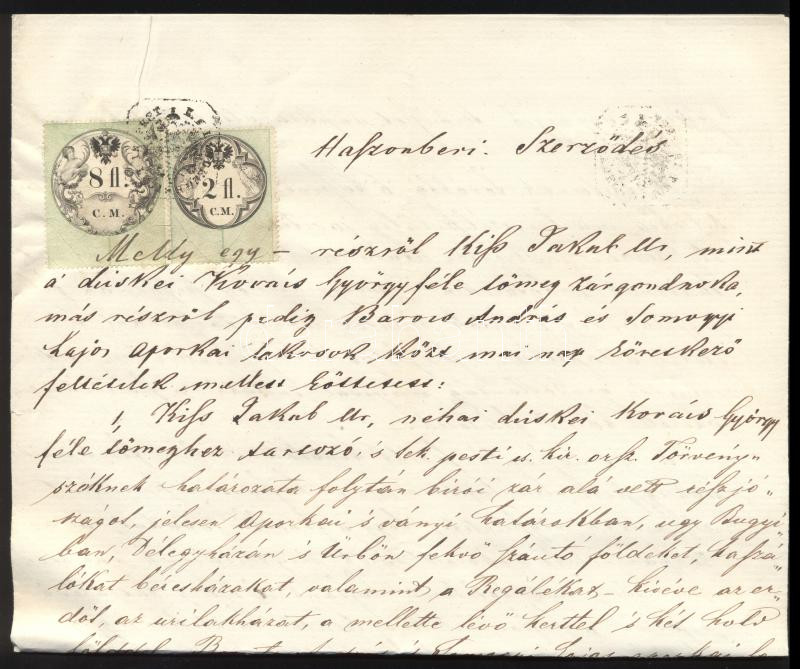 8 fl.
C. M.
2 fl.
C. M.
Haszonbéri Szerződés
Mely egy – részről Kiss Jakab Ur, mint
a dúskei Kovács György féle tömeg zárgondnoka,
más részről pedig Barocs András és Somogyi
Lajos aporkai lakosok közt mai nap következő
feltételek mellett köttetett:
1, Kiss Jakab Ur, néhai dúskei Kovács György
féle tömeghez tartozó, s tek. pesti cs. kir. orsz. Törvény-
széknek határozata folytán birói zár alá vett részjó-
szágot, jelesen Aporkai s ványi határokban, ugy Bugyi-
ban, Délegyházán s Ürbőn fekvő szántó földeket, kaszá-
lókat béresházakat, valamint a Regálékat – kivéve az er-
dőt, az urilakházat, a mellette lévő kerttel s hét hold